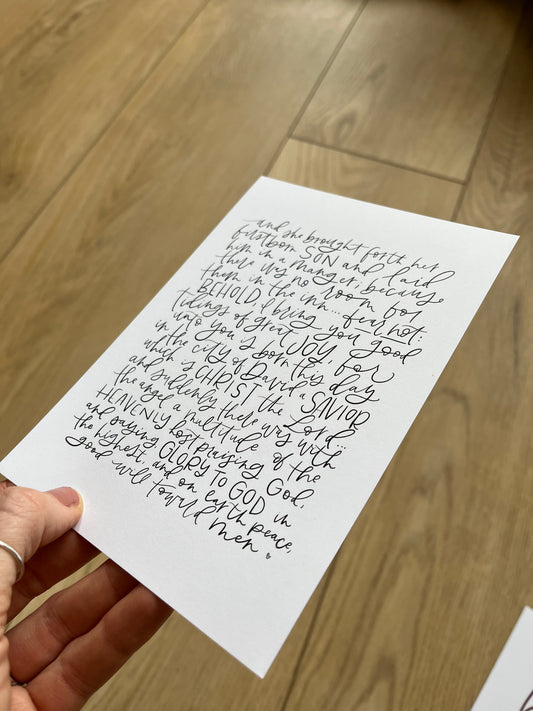 and she brought forth her
firstborn SON and laid
him in a manger; because
there was no room for
them in the inn... fear not:
BEHOLD, I bring you good
tidings of great JOY. for
unto you is born this day
in the city of David a SAVIOR
which is CHRIST the Lord...
and suddenly there was with
the angel a multitude of the
HEAVENLY host praising God,
and saying GLORY TO GOD in
the highest, and on earth peace,
good will toward men.